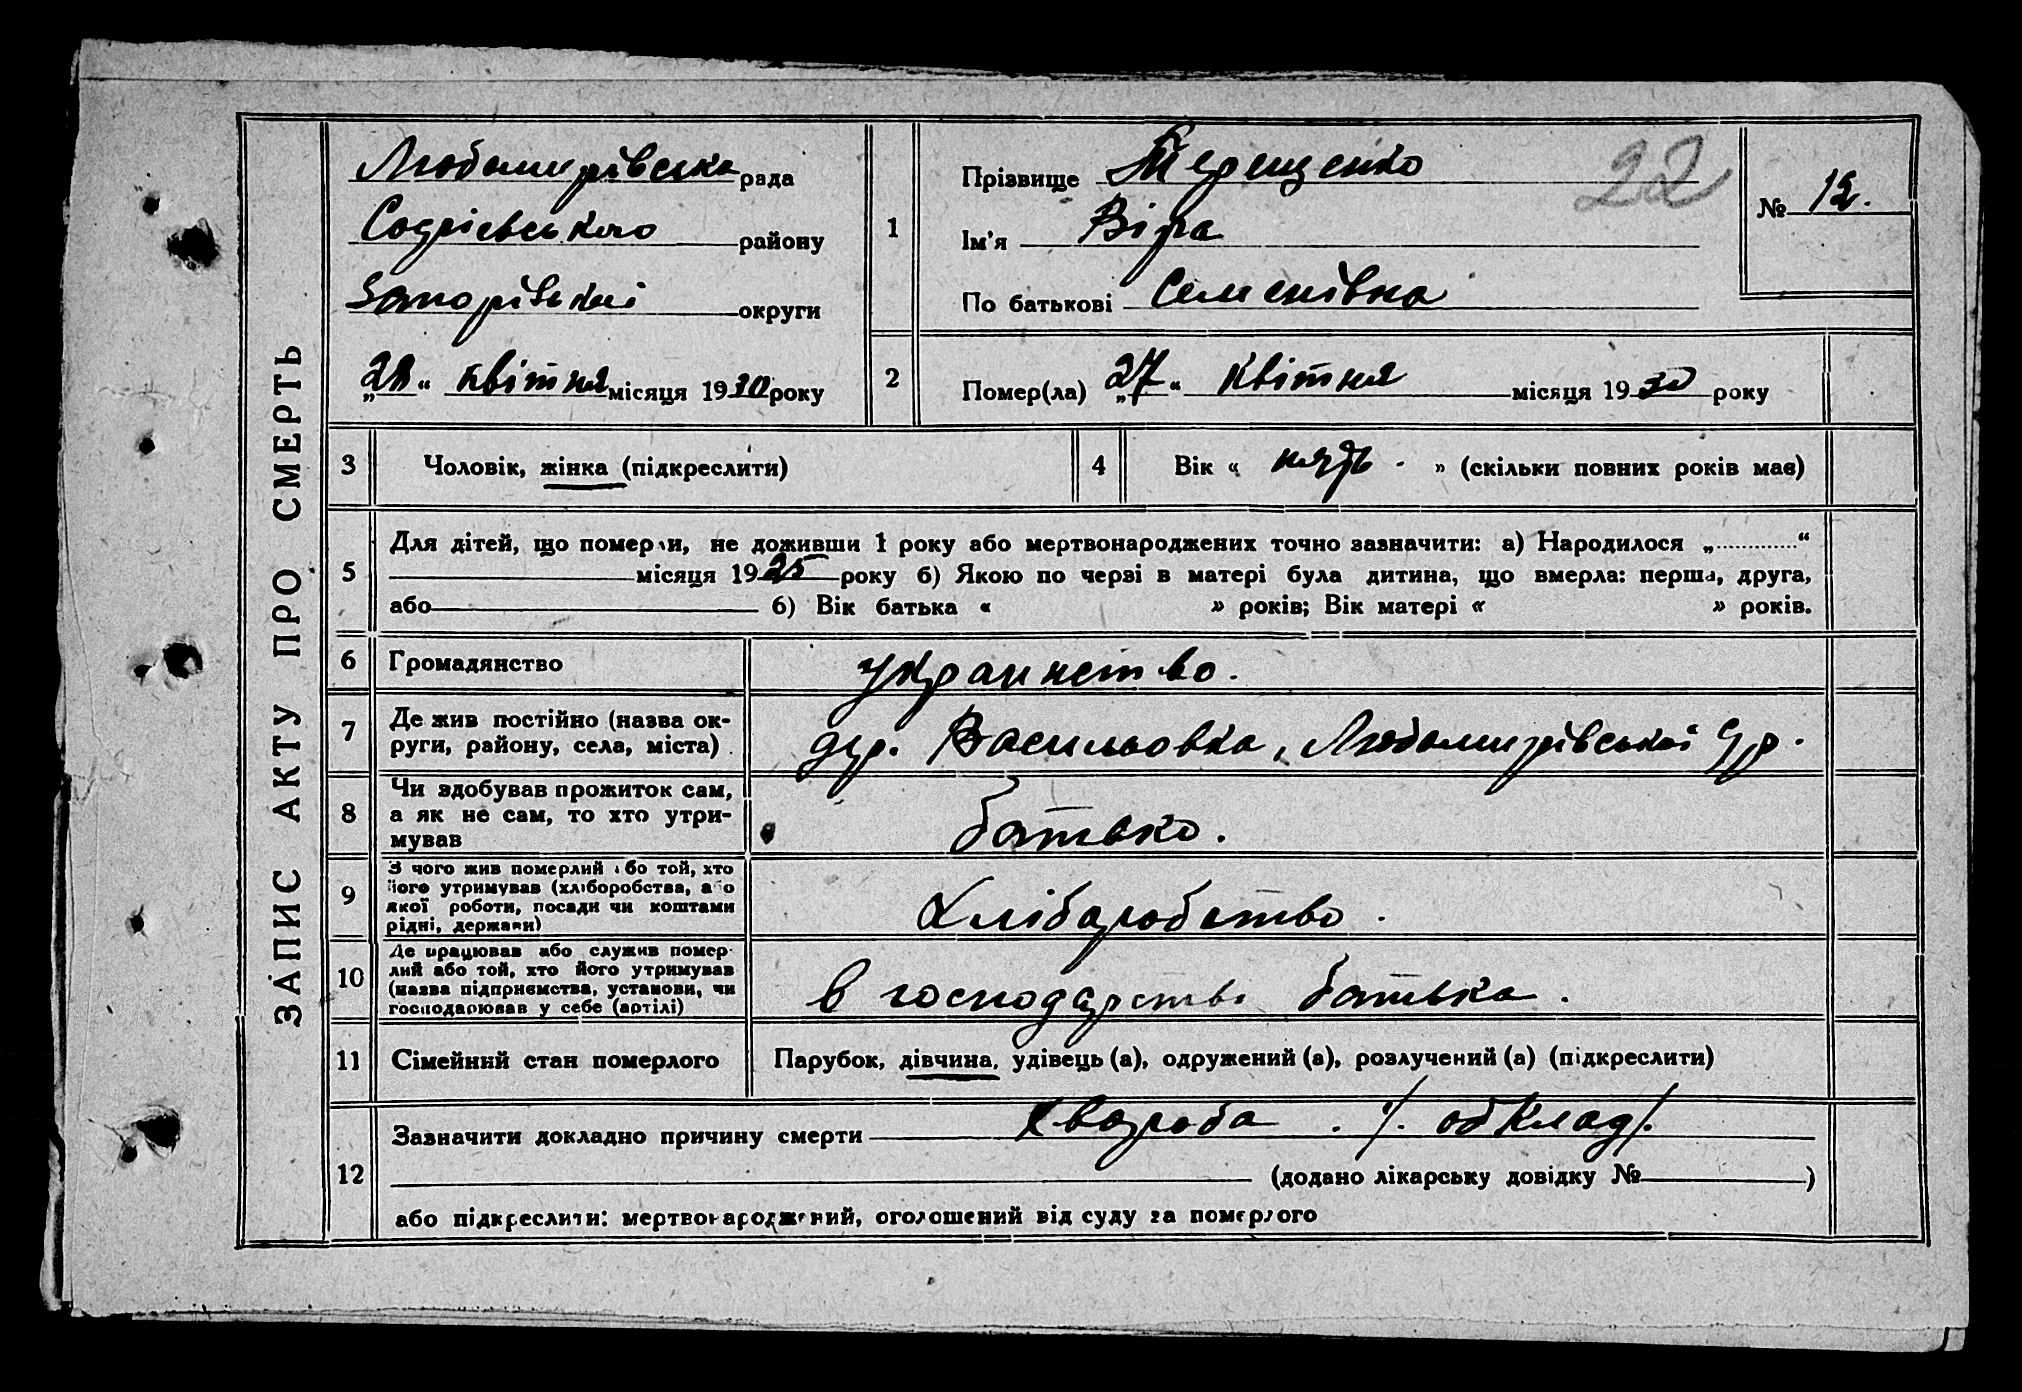 ЗАПИС АКТУ ПРО СМЕРТЬ
Любомирівська рада
Софіевського району
Запорівькоі округи
„28“ квітня місяця 1930 року
1
Прізвище Терещенко
Ім'я Віра
По батькові Семенівна
22
№ 12.
2
Помер(ла) „27“ квітня місяця 1930 року
3 Чоловік, жінка (підкреслити)
4 Вік « пядь » (скільки повних років має)
5 Для дітей, що померли, не доживши 1 року або мертвонароджених точно зазначити: а) Народилося „ “
місяця 1925 року б) Якою по черзі в матері була дитина, що вмерла: перша, друга,
або 6) Вік батька « » років; Вік матері « » років.
6 Громадянство украинство.
7 Де жив постійно (назва ок-
руги, району, села, міста)
дер. Васильовка, Любомирівськоі
8 Чи здобував прожиток сам,
а як не сам, то хто утри-
мував
батько.
9 З чого жив померлий або той, хто
його утримував (хліборобства, або
якої роботи, посади чи коштами
рідні, держави)
Хлібаробство.
10 Де працював або служив помер-
лий або той, хто його утримував
(назва підприємства, установи, чи
господарював у себе (артілі)
в господарстві батька.
11 Сімейний стан померлого Парубок, дівчина, удівець (а), одружений (а), розлучений (а) (підкреслити)
12 Зазначити докладно причину смерти хвороба . /. обклад/.
(додано лікарську довідку № )
або підкреслити: мертвонароджений, оголошений від суду за померлого